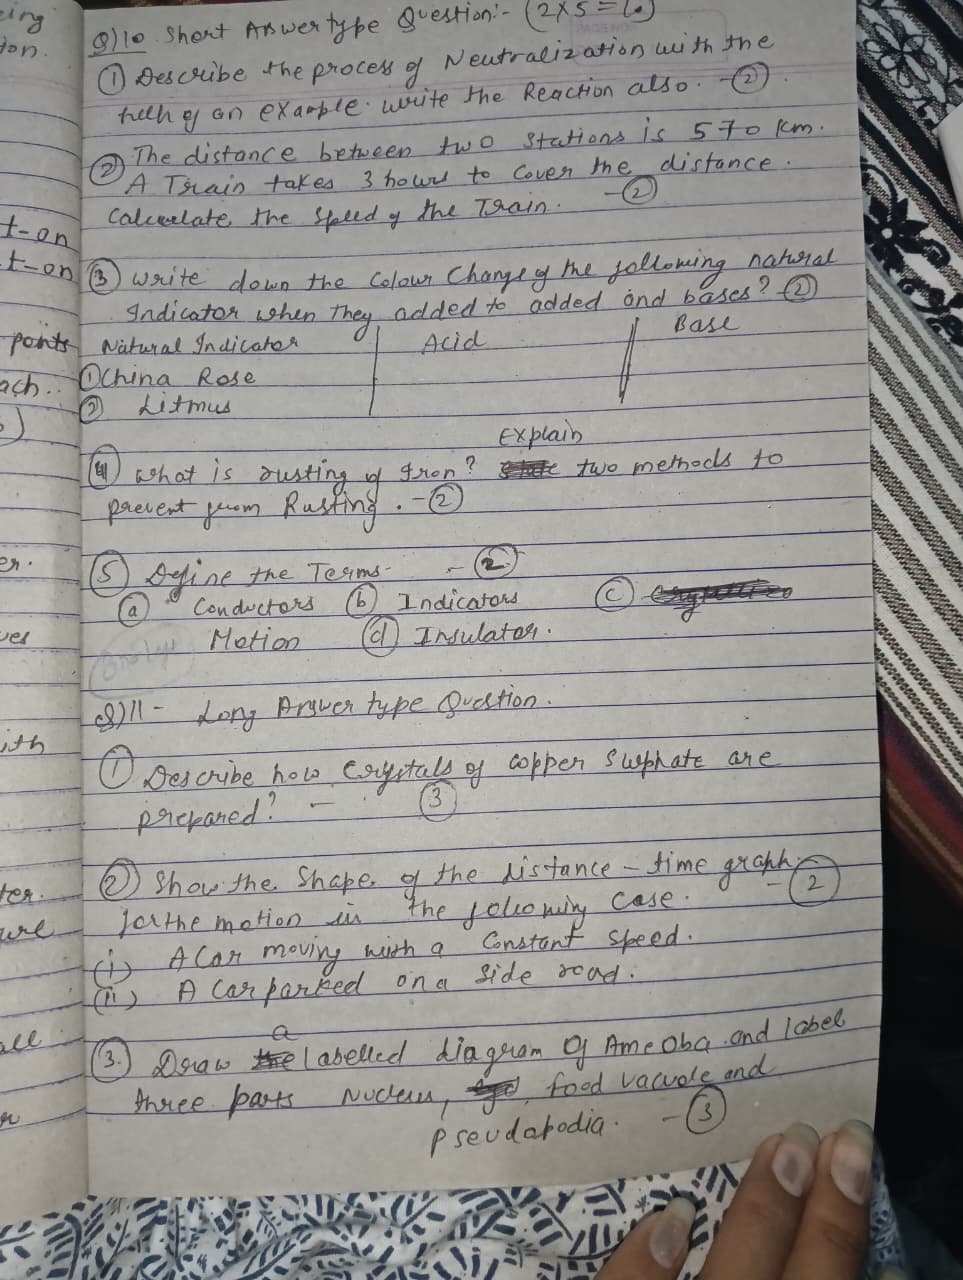 eing
ion.
t-on
t-on
points
ach.
er.
ves
ith
ter.
ure
all
Q)10 Short Answer type Question:- (2x5=10)
① Describe the process of Neutralization with the
help of an example. write the Reaction also. -②.
② The distance between two stations is 570 km.
A Train takes 3 hours to cover the distance.
Calculate the speed of the Train. -②
③ write down the Colour Change of the following natural
Indicator when they added to added and bases? -②
Natural Indicator Acid Base
① China Rose
② Litmus
Explain
④ What is rusting of Iron? two methods to
prevent from Rusting. -②
⑤ Define the Terms- -②
ⓐ Conductors ⓑ Indicators ⓒ
Motion ⓓ Insulator.
Q)11- Long Answer type Question.
① Describe how Crystals of copper Sulphate are
prepared? - ③
② Show the Shape of the distance-time graph
for the motion in the following case. -②
(i) A Car moving with a Constant speed.
(ii) A Car parked on a side road.
a
③. Draw labelled diagram of Ameoba and label
three parts Nucleus, food vacuole and
Pseudapodia. -③